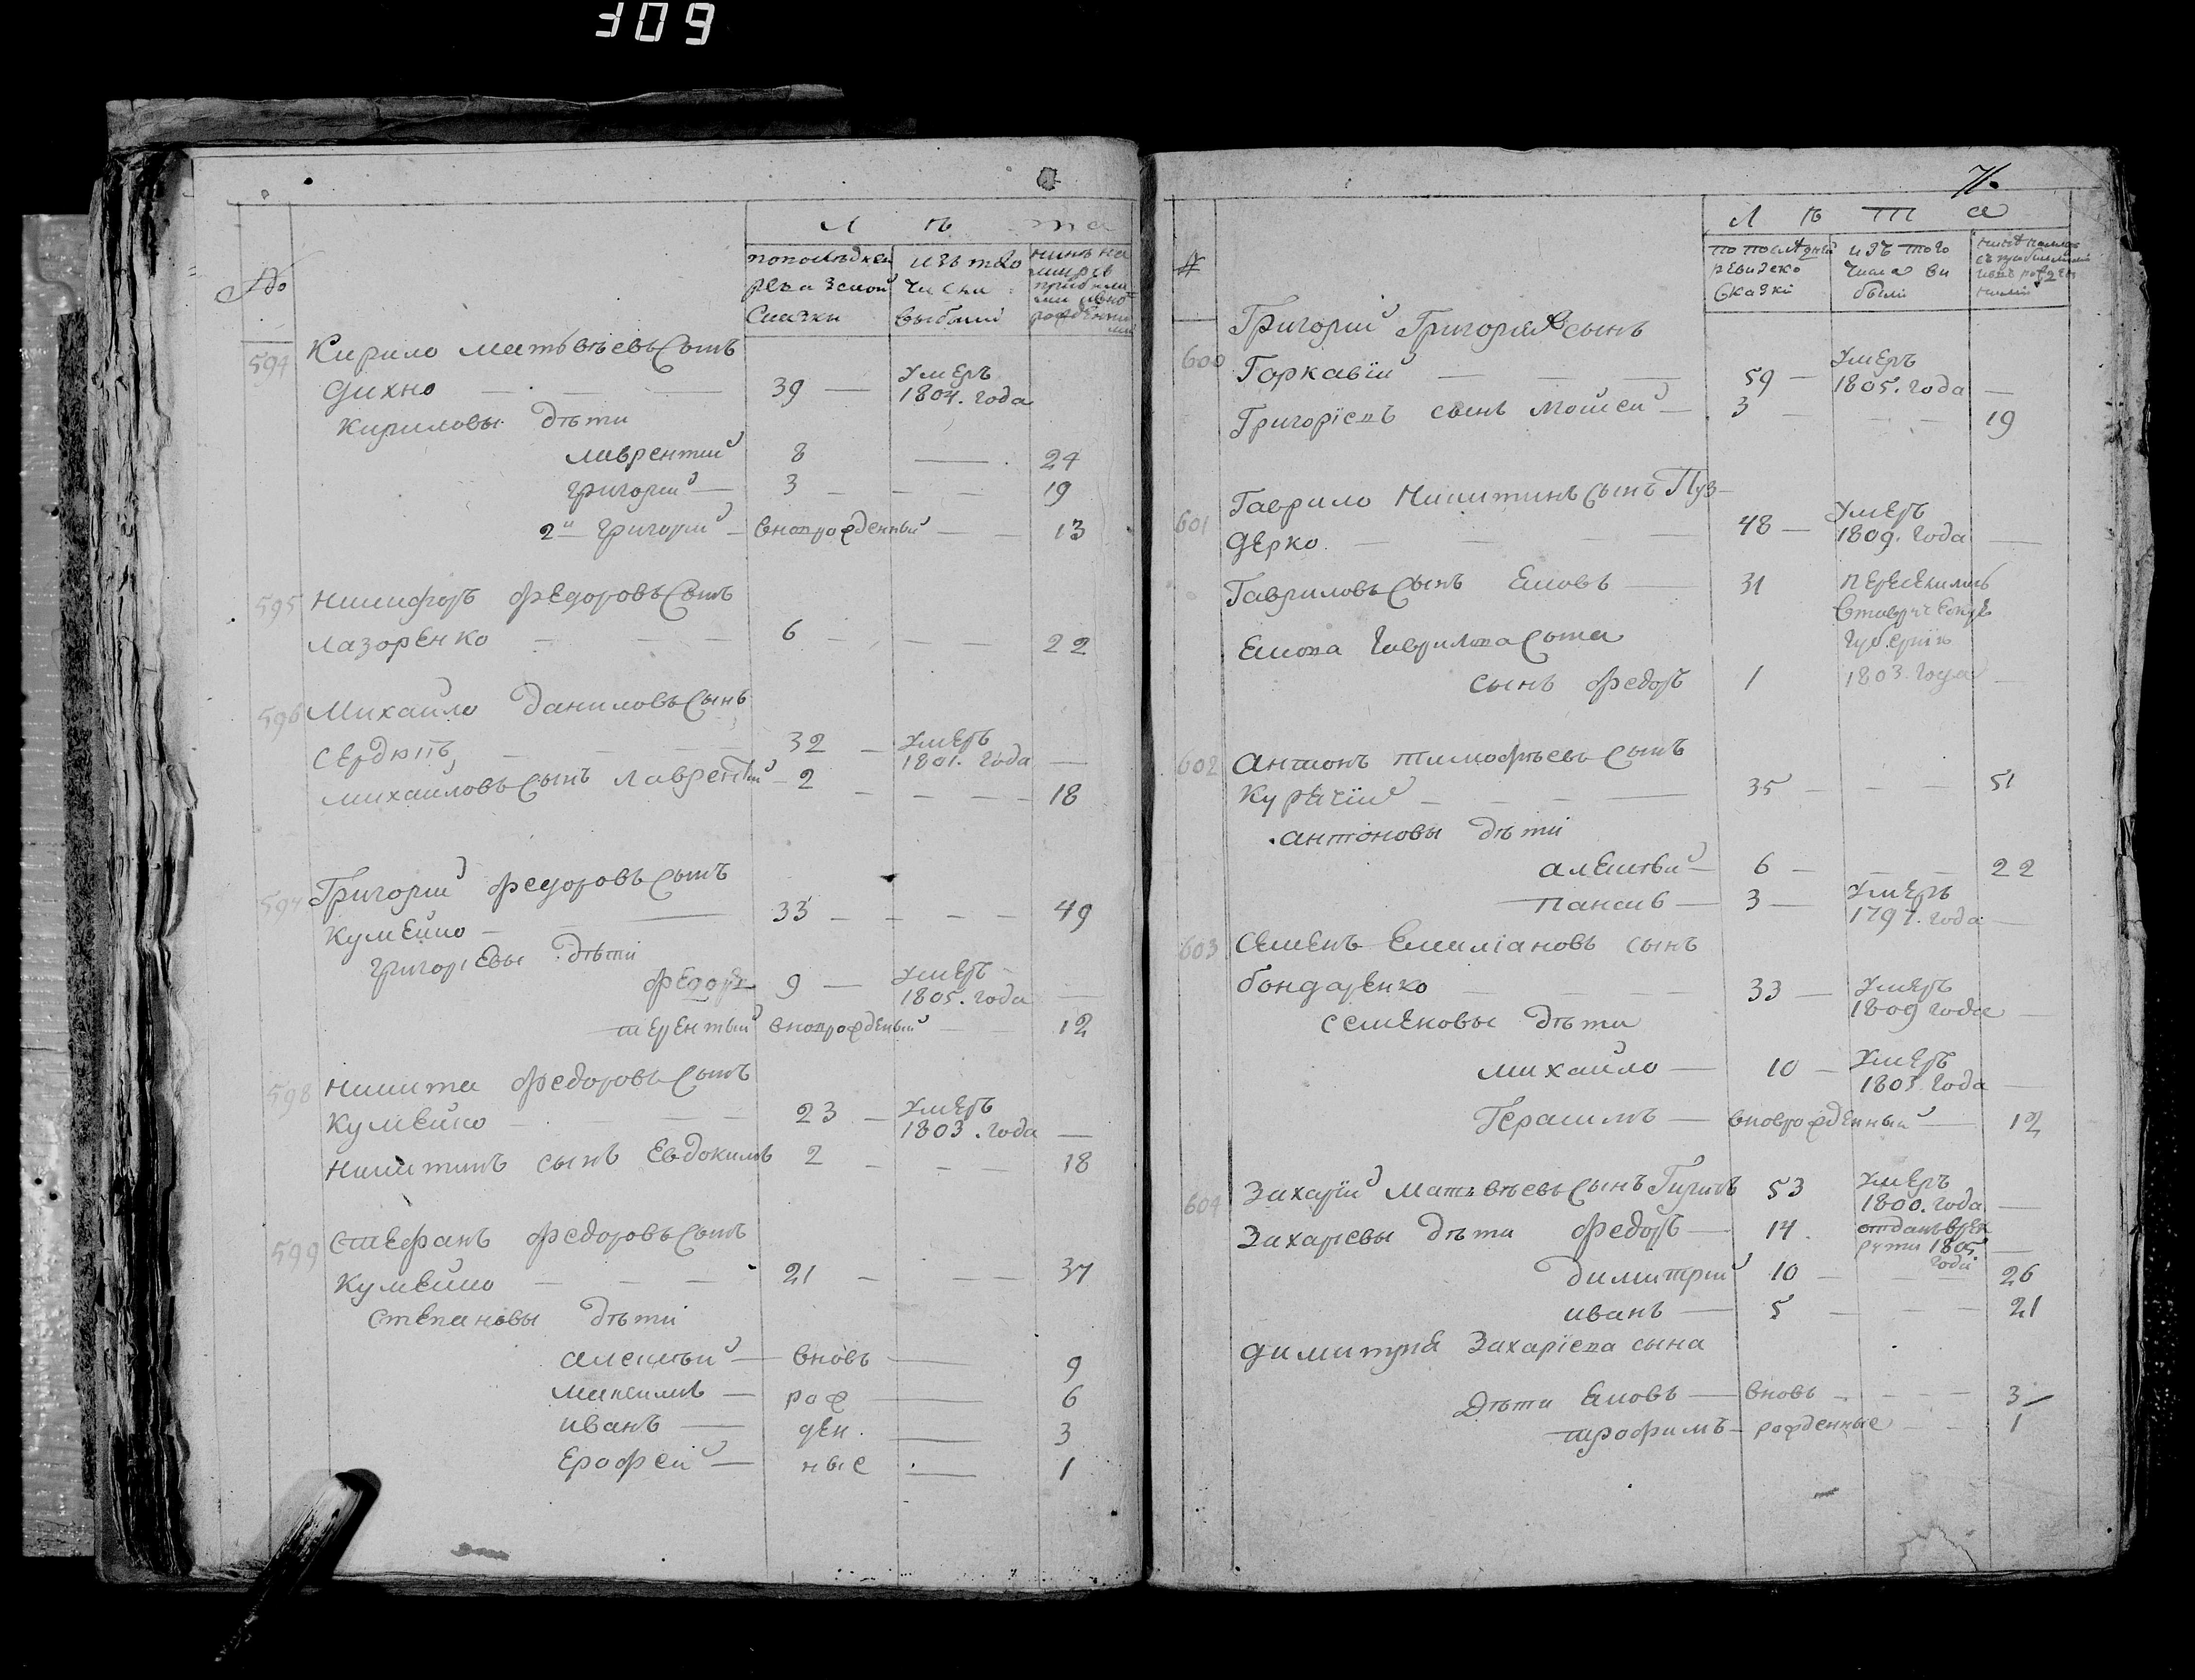 309
№
Л ѣ та
по последней ревизской сказки
изъ того числа выбыли
594 Кирило Матвѣевъ Сынъ
Дихно — — — 39 — Умеръ 1804. года
Кириловы дѣти
Лаврентий 8 — 24
Григорий — 3 — — — 19
2й Григорий — вноврожденный — — 13
595 Никифоръ Федоровъ Сынъ
Лазоренко — — — 6 — — — 22
596 Михайло Даниловъ Сынъ
Сердюкъ, — — — 32 — Умеръ 1801. года —
Михайловъ Сынъ Лаврентий — 2 — — — — 18
597 Григорий Федоровъ Сынъ
Кумейко — — 33 — — — — 49
Григориевы дѣти
Федоръ 9 — Умеръ 1805. года —
Терентий вноврожденый — — 12
598 Никита Федоровъ Сынъ
Кумейко — — — 23 — Умеръ 1803. года —
Никитинъ сынъ Евдокимъ 2 — — — 18
599 Стефанъ Федоровъ Сынъ
Кумейко — — — 21 — — — 37
Степановы дѣти
Алексѣй — вновь — 9
Максимъ — рож — 6
Иванъ — ден. — 3
Ерофей — ные — 1
71.
№
Л ѣ т а
по последней ревизско сказки
изъ того числа выбыли
600 Григорий Григориевъ сынъ
Горкавїй — — — 59 — Умеръ 1805. года —
Григорїевъ сынъ Мойсей — 3 — — — 19
601 Гаврило Никитинъ Сынъ Пуз-
дерко. — — — 48 — Умеръ 1809. года —
Гавриловъ Сынъ Яковъ — 31 Переселились
в таврической
Якова Гаврилова Сына губернии
сынъ Федоръ 1 1803. года —
602 Антонъ Тимофѣевъ Сынъ
Курачїй — — — — 35 — — — 51
Антоновы дѣти
Алексѣй — 6 — — — 22
Панасъ — 3 — Умеръ 1797. года —
603 Семенъ Емилїановъ сынъ
Бондаренко — — — 33 — Умеръ 1809 года —
Семеновы дѣти
Михайло — 10 — Умеръ 1803. года —
Герасимъ — вноврожденный — 12
604 Захарїй Матвѣевъ Сынъ 53 Умеръ 1800. года —
Захариевы дѣти Федоръ — 14. отданъ в рек
рути 1805. года —
Димитрий 10 — — 26
Иванъ — 5 — — — 21
Димитрия Захарїева сына
Дѣти Яковъ — вновь — — — — 3
Трофимъ — рожденные — — 1